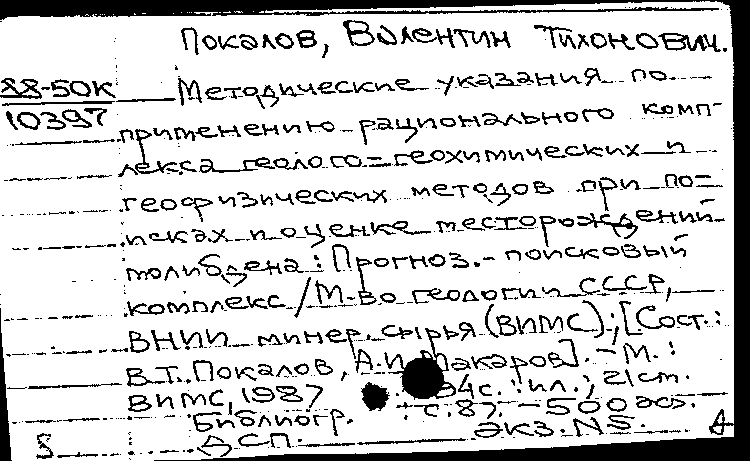 Покалов, Валентин Тихонович.
88-50К Методические указания по
10397
применению рационального комп-
лекса геолого=геохимических и
геофизических методов при по=
исках и оценке месторождений
молибдена: Прогноз.-поисковый
комплекс / М-во геологии СССР,
ВНИИ минер. сырья (ВИМС); [Сост.:
В.Т. Покалов, А.И. Макаров]. - М.:
ВИМС, 1987 94с.: ил.; 21см.
Библиогр.: с. 87. - 500 экз.
ДСП. экз. №5.